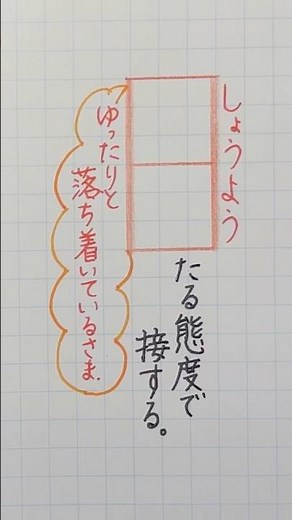 しょうよう
たる態度で
接する。
ゆったりと
落ち着いているさま.